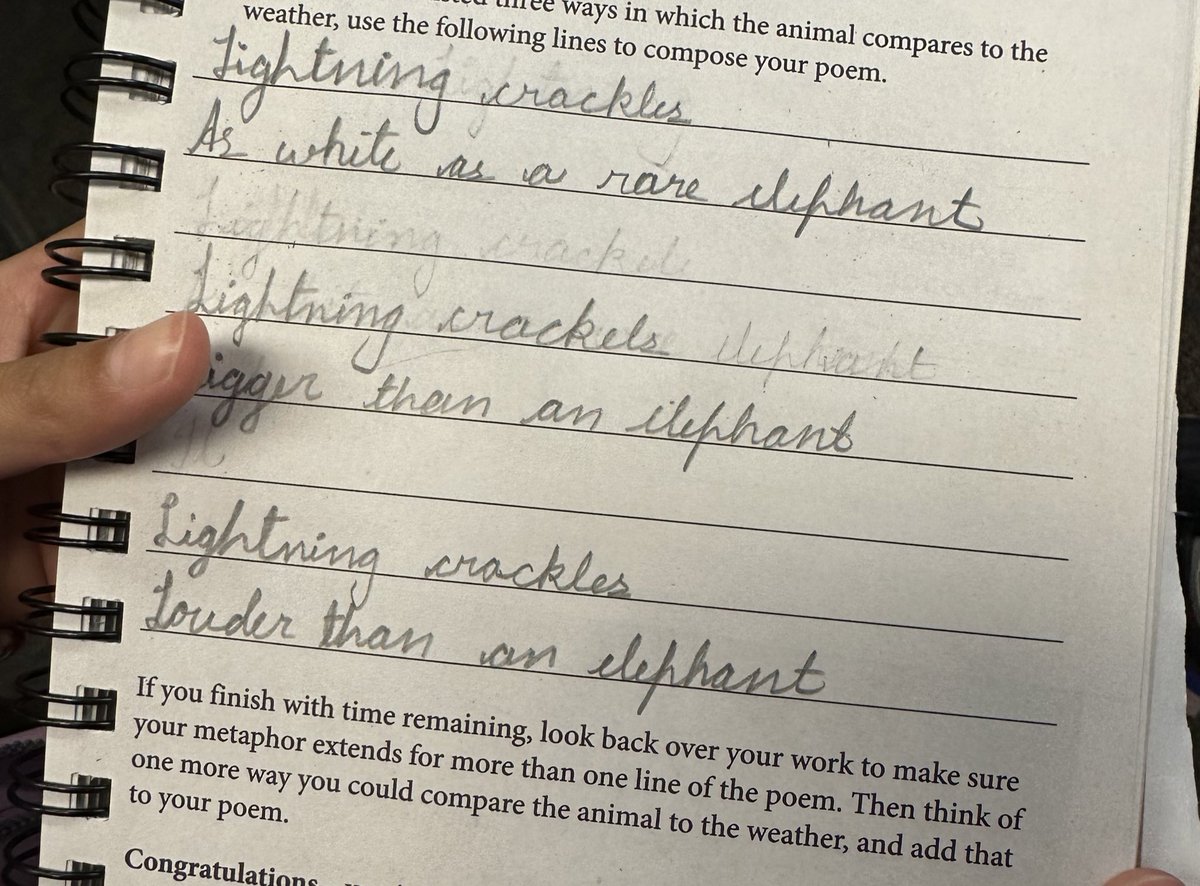 three ways in which the animal compares to the
weather, use the following lines to compose your poem.
Lightning crackles
As white as a rare elephant
Lightning crackel
Lightning crackels elephant
igger than an elephant
Lightning crackles
Louder than an elephant
If you finish with time remaining, look back over your work to make sure
your metaphor extends for more than one line of the poem. Then think of
one more way you could compare the animal to the weather, and add that
to your poem.
Congratulations